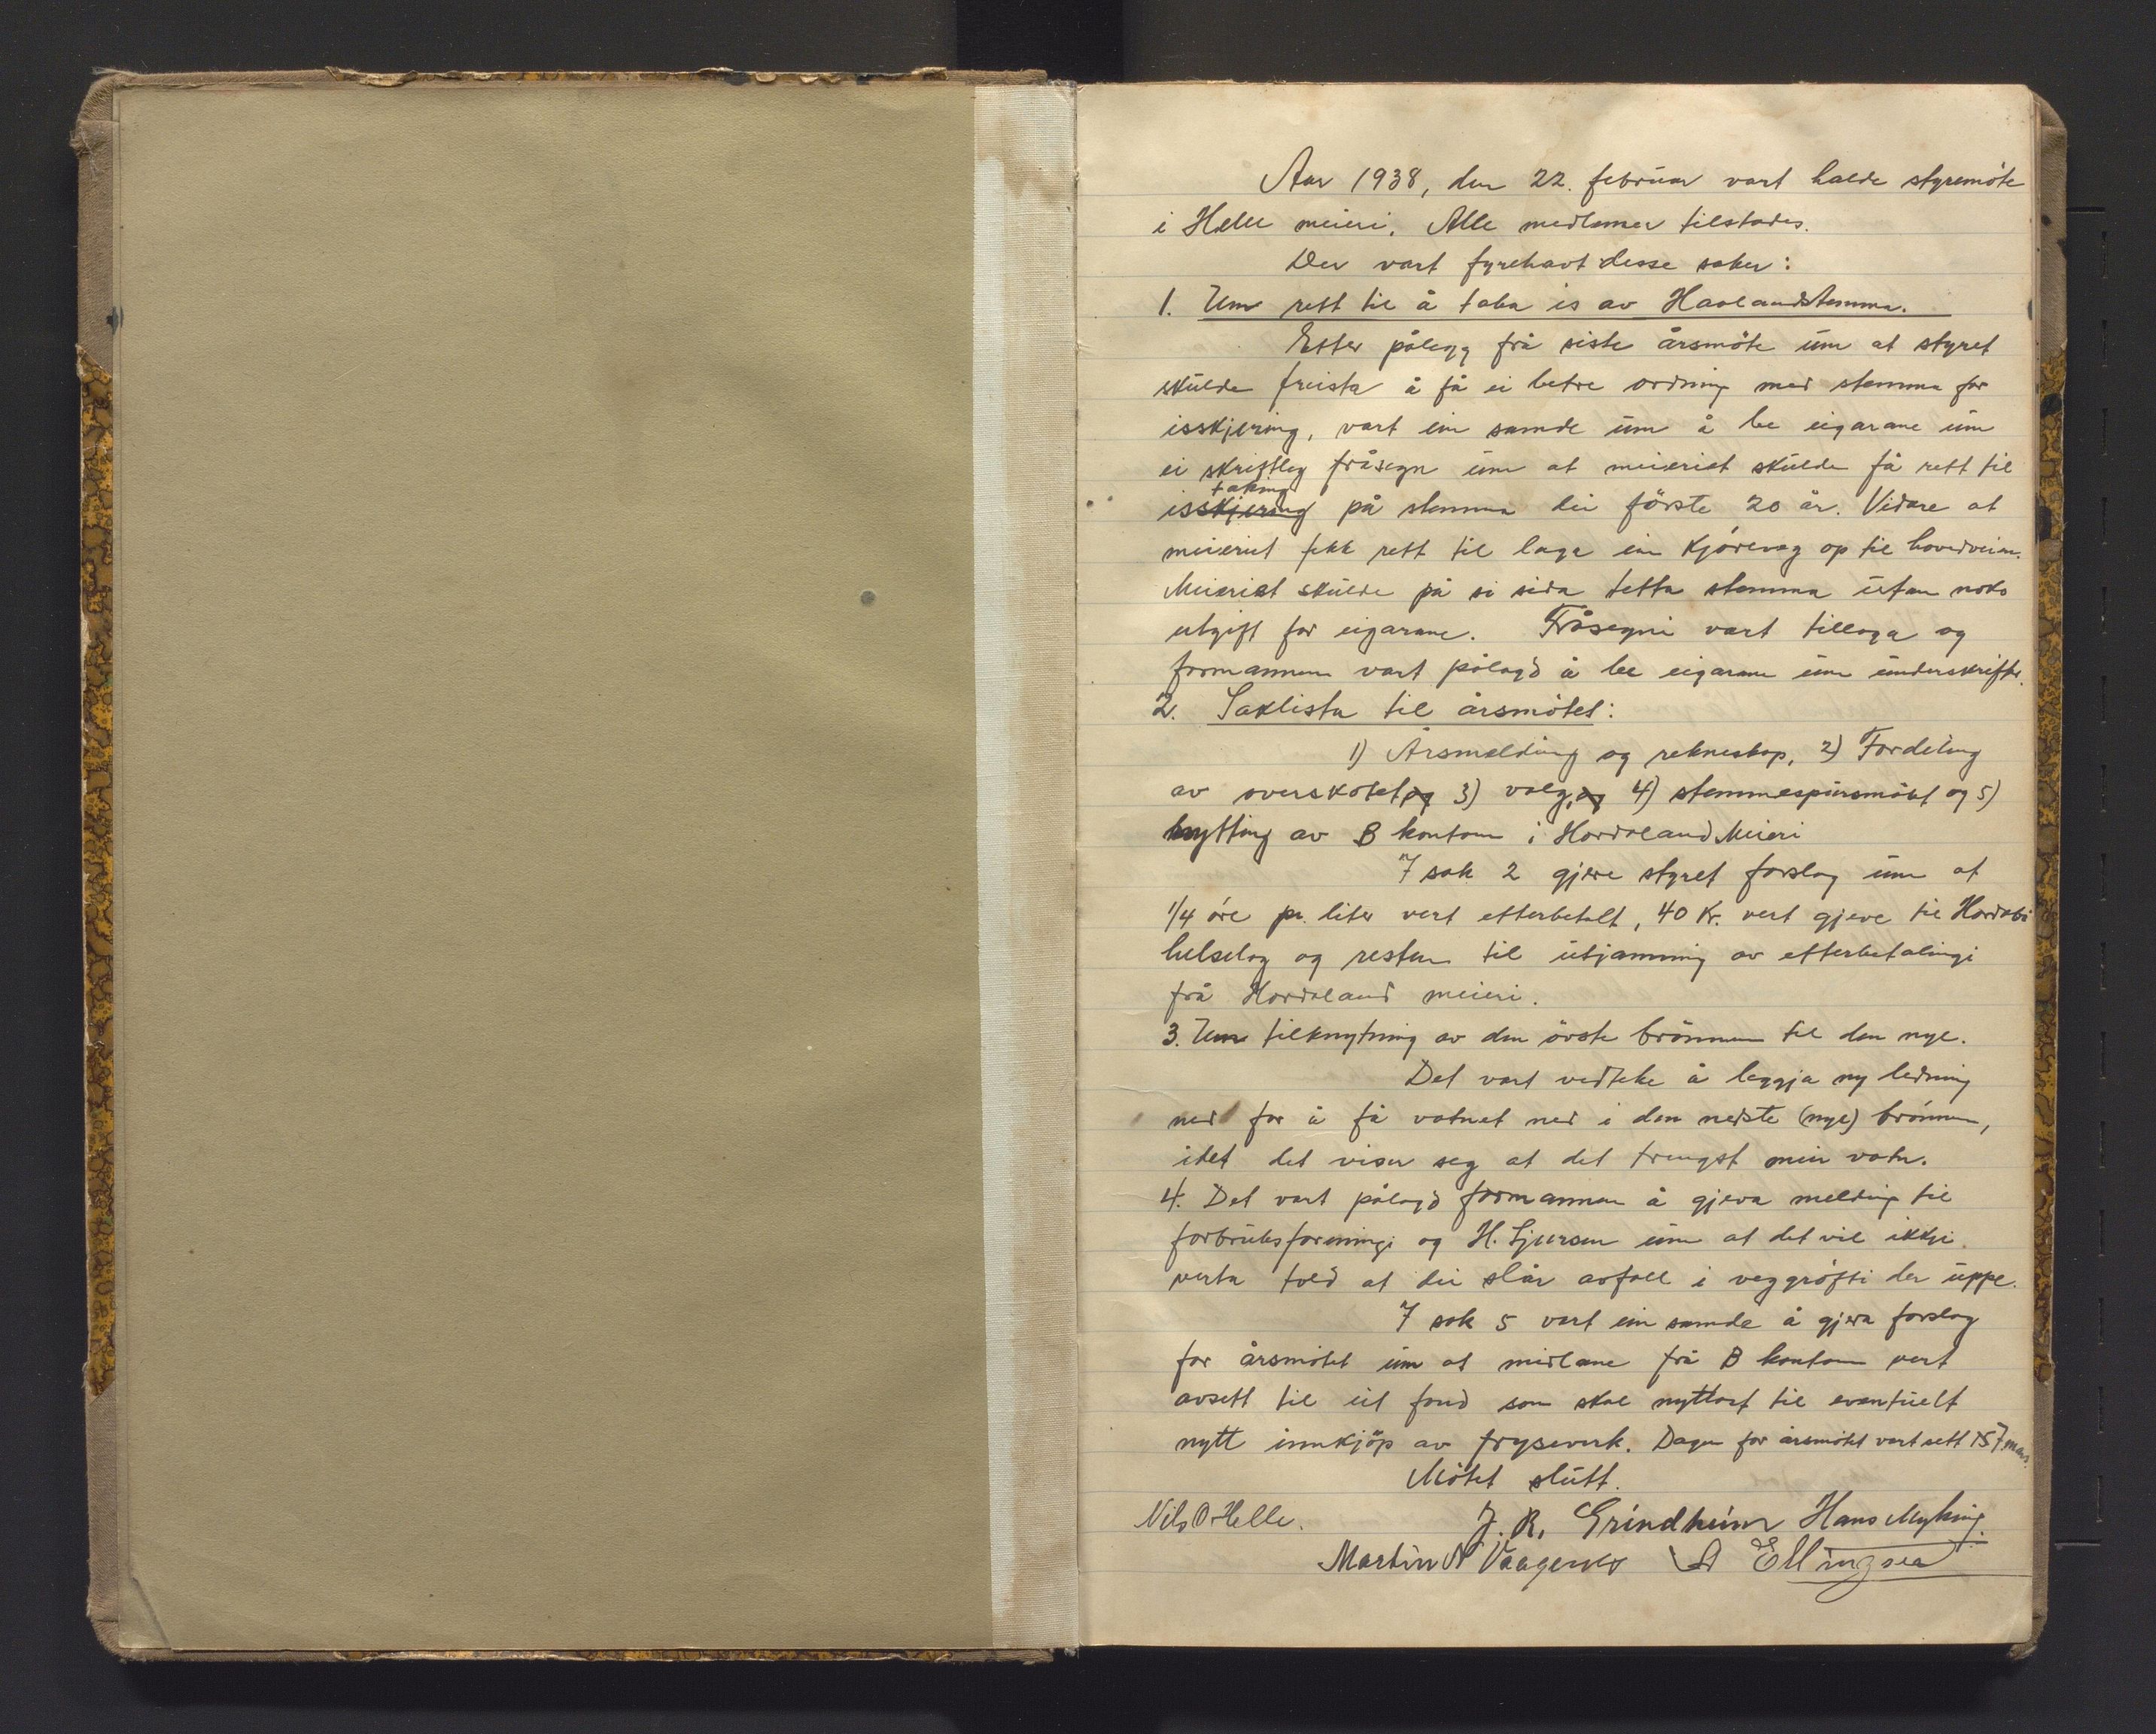 Aar 1938, den 22. februar vart halde styremöte
i Helle meieri. Alle medlemer tilstades.
Der vart fyrehavt desse saker:
1. Um rett til å taka is av Haalandstemma.
Etter pålegg frå siste årsmöte um at styret
skulde freista å få ei betre ordning med stemma for
isskjering, vart ein samde um å be eigarane um
ei skriftleg fråsegn um at meieriet skulde få rett til
taking
isskjering på stemma dei förste 20 år. Vidare at
meieriet fekk rett til laga ein kjöreveg op til hovedveien.
Meieriet skulde på si sida tetta stemma utan noko
utgift for eigarane. Fråsegni vart tillaga og
formannen vart pålagd å be eigarane um underskrifter.
2. Saklista til årsmötet:
1) Årsmelding og rekneskap, 2) Fordeling
av overskotet, og 3) valg, og 4) stemmespursmålet og 5)
nytting av B kontoen i Hordaland Meieri
I sak 2 gjere styret forslag um at
1/4 öre pr. liter vert etterbetalt, 40 kr. vert gjeve til Hordabö
helselag og resten til utjamning av etterbetalingi
frå Hordaland meieri.
3. Um tilknytning av den övste brönnen til den nye.
Det vart vedteke å leggja ny ledning
ned for å få vatnet ned i den nedste (nye) brönnen,
idet det viser seg at det trengst meir vatn.
4. Det vart pålagd formannen å gjeva melding til
forbruksforeningi og H. Sjursen um at det vil ikkje
verta told at dei slår avfall i veggröfti der uppe.
I sak 5 vart ein samde å gjera forslag
for årsmötet um at midlane frå B kontoen vert
avsett til eit fond som skal nyttast til eventuelt
nytt innkjöp av fryseverk. Dagen for årsmötet vart sett til 7. mars.
Mötet slutt.
Nils O. Helle. J. R. Grindheim Hans Myking
Martin N Vaagenes A Ellingsen